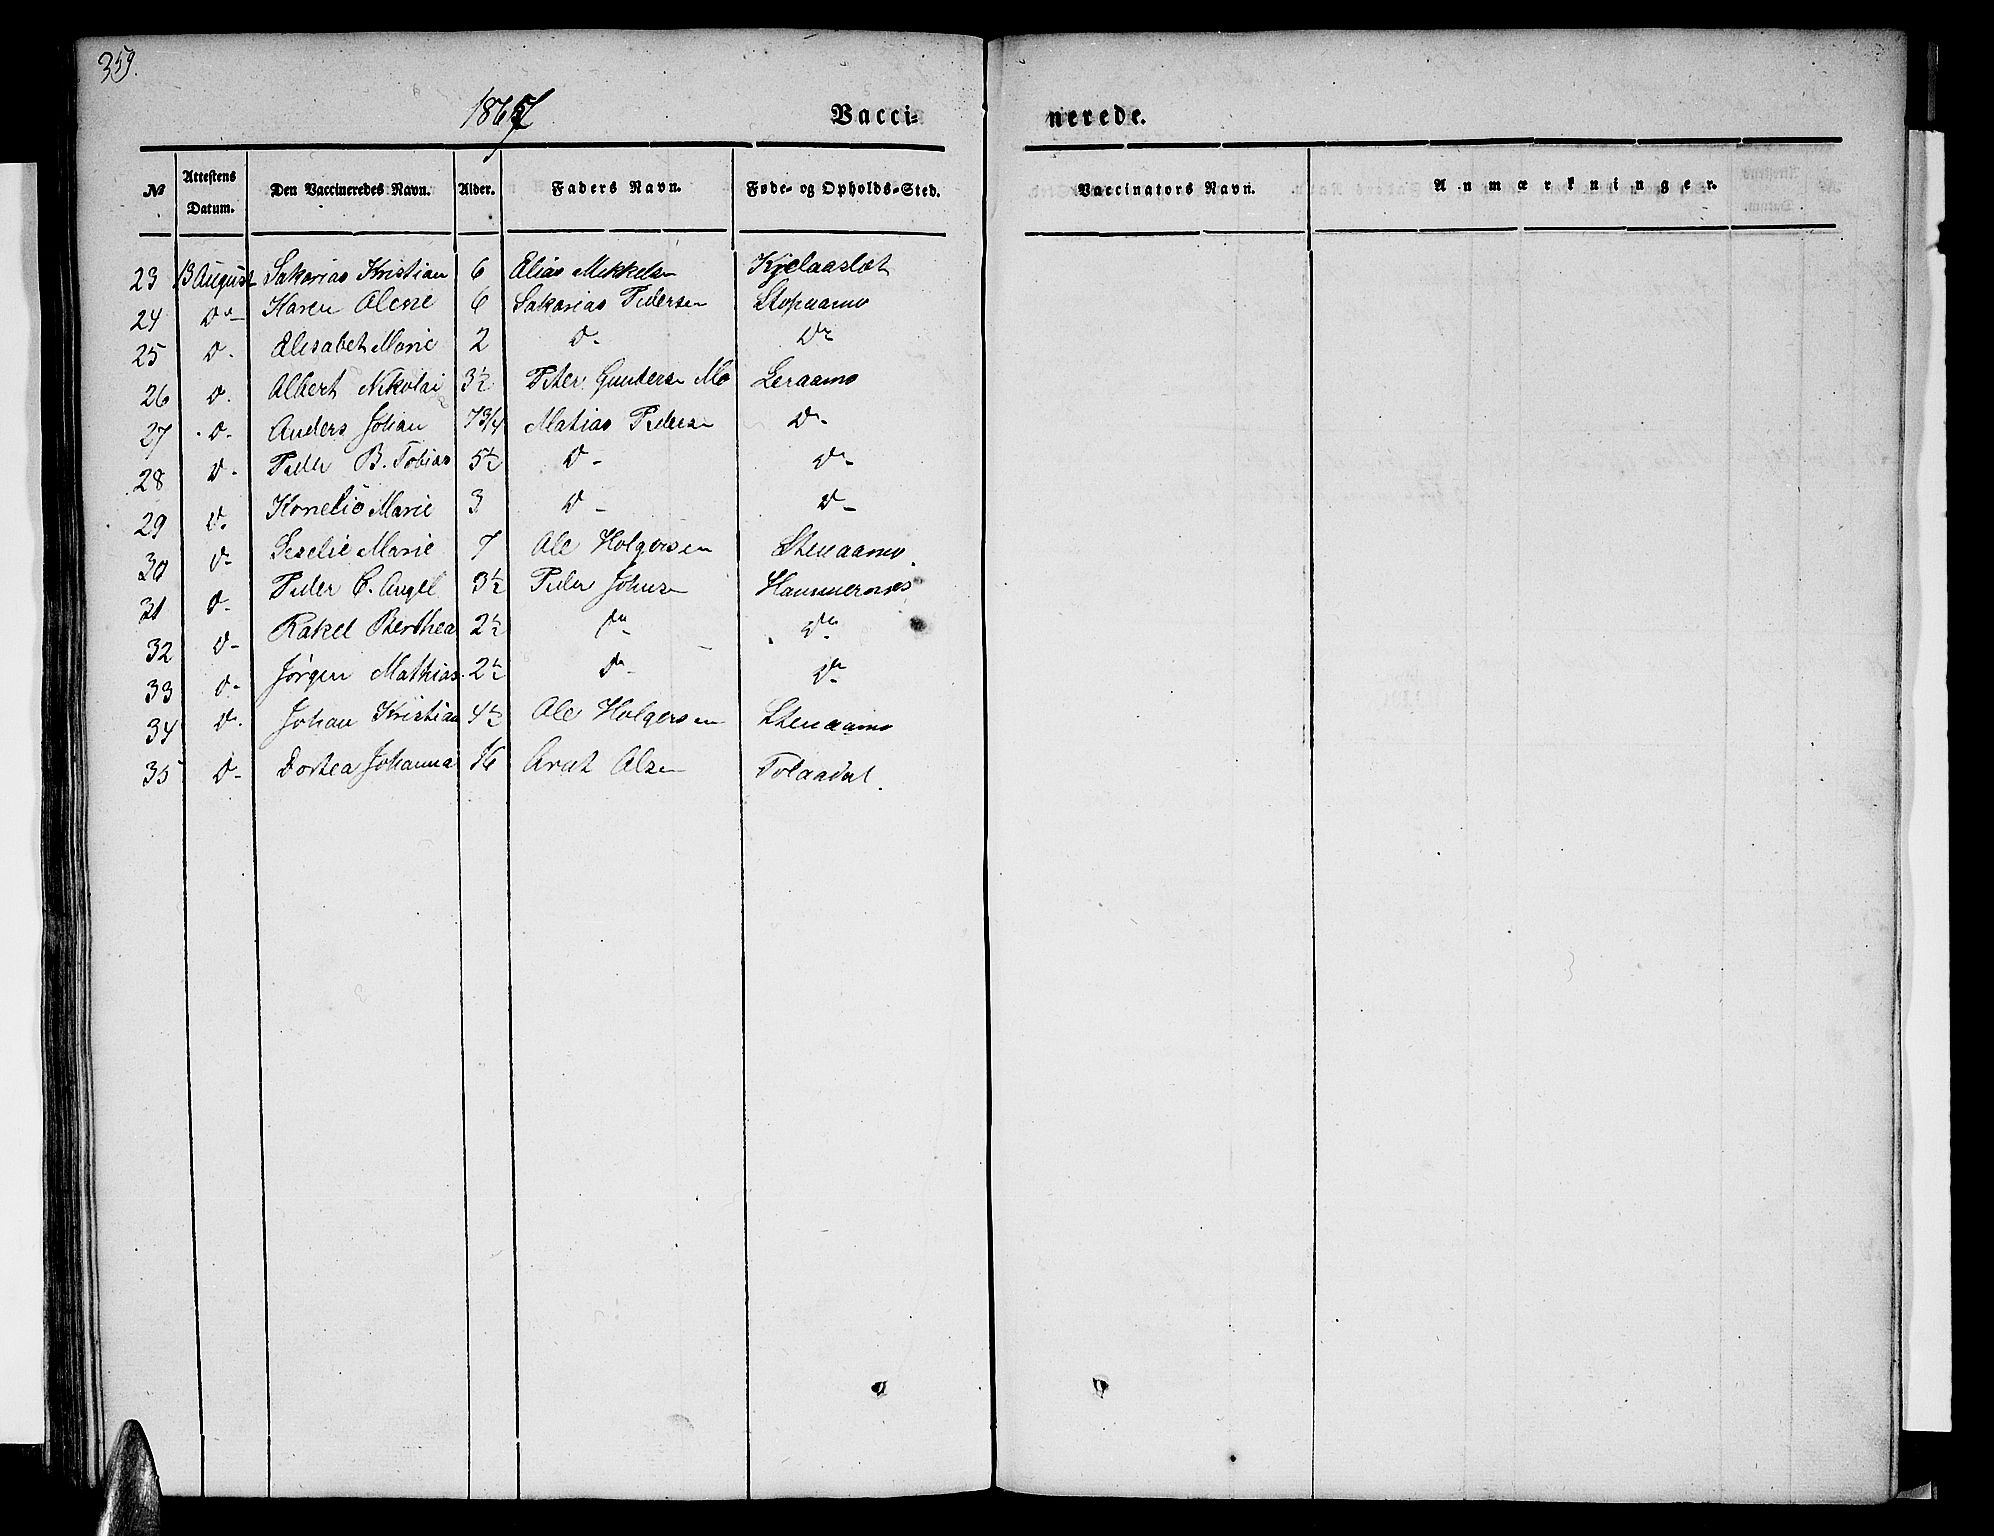 359.
Vaccinerede.
№ Attestens Datum. Den Vaccineredes Navn. Alder. Faders Navn. Føde- og Opholds-Sted. Vaccinators Navn. Anmærkninger.
23 13 August Sakarias Kristian 6 Elias Mikkelsen
24 Do Karen Olene 6 Sakarias Pedersen
25 Do Elisabet Marie 2 Do Do
26 Do Albert Nikolai 3½ Peter Gundersen Mo Leraamo
27 Do Anders Johan 7 3/4 Matias Pedersen Do
28 Do Peder B. Tobias 5½ Do Do
29 Do Kornelia Marie 3 Do Do
30 Do Seselie Marie 7 Ole Holgersen Stenaamo
31 Do Peder C. Angel 3½ Peder Johnsen Hammernæs
32 Do Rakel Berthea 2½ Do Do
33 Do Jørgen Mathias 2½ Do Do
34 Do Johan Kristian 4½ Ole Holgersen Stenaamo
35 Do Dortea Johanna 16 Arnt Olsen